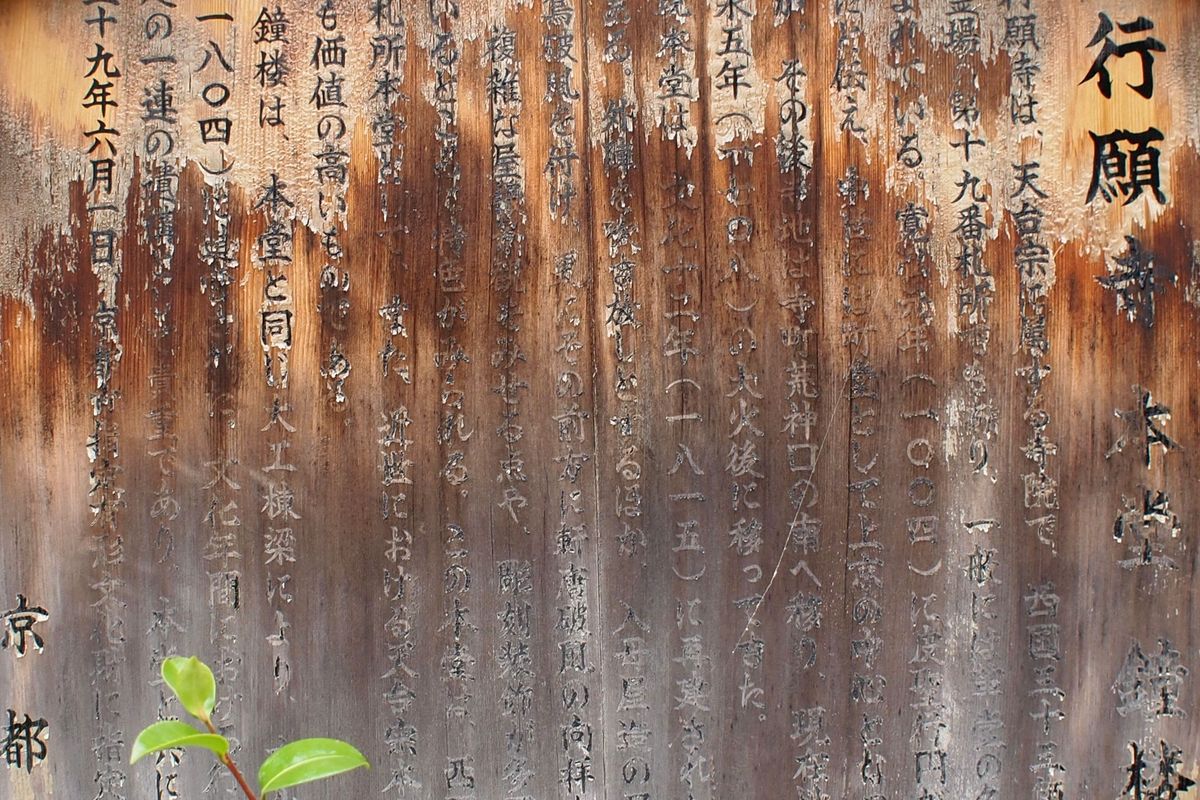 行願寺 本堂 鐘楼
行願寺は、天台宗に属する寺院で、西国三十三
霊場の第十九番札所であり、一般には革堂の
まれている。寛弘元年(一〇〇四)に皮聖行円
たと伝え、中世には町堂として上京の中心とな
が、その後寺地は寺町荒神口の南へ移り、現在
永五年(一七〇八)の大火後に移ってきた。
現本堂は、文化十二年(一八一五)に再建され
ある。外陣を吹き放しとするほか、入母屋造の
鳥破風を付け、更にその前方に軒唐破風の向拝
複雑な屋 をみせる点や、彫刻装飾が多
いるところに特色がみられる。この本堂は、西
札所本堂として、また、近世における天台宗本
も価値の高いものである。
鐘楼は、本堂と同じ大工棟梁により、
一八〇四)に 文化年間における
の一連の遺構として貴重であり、本堂と共に
十九年六月一日、京都市指定有形文化財に指定
京都